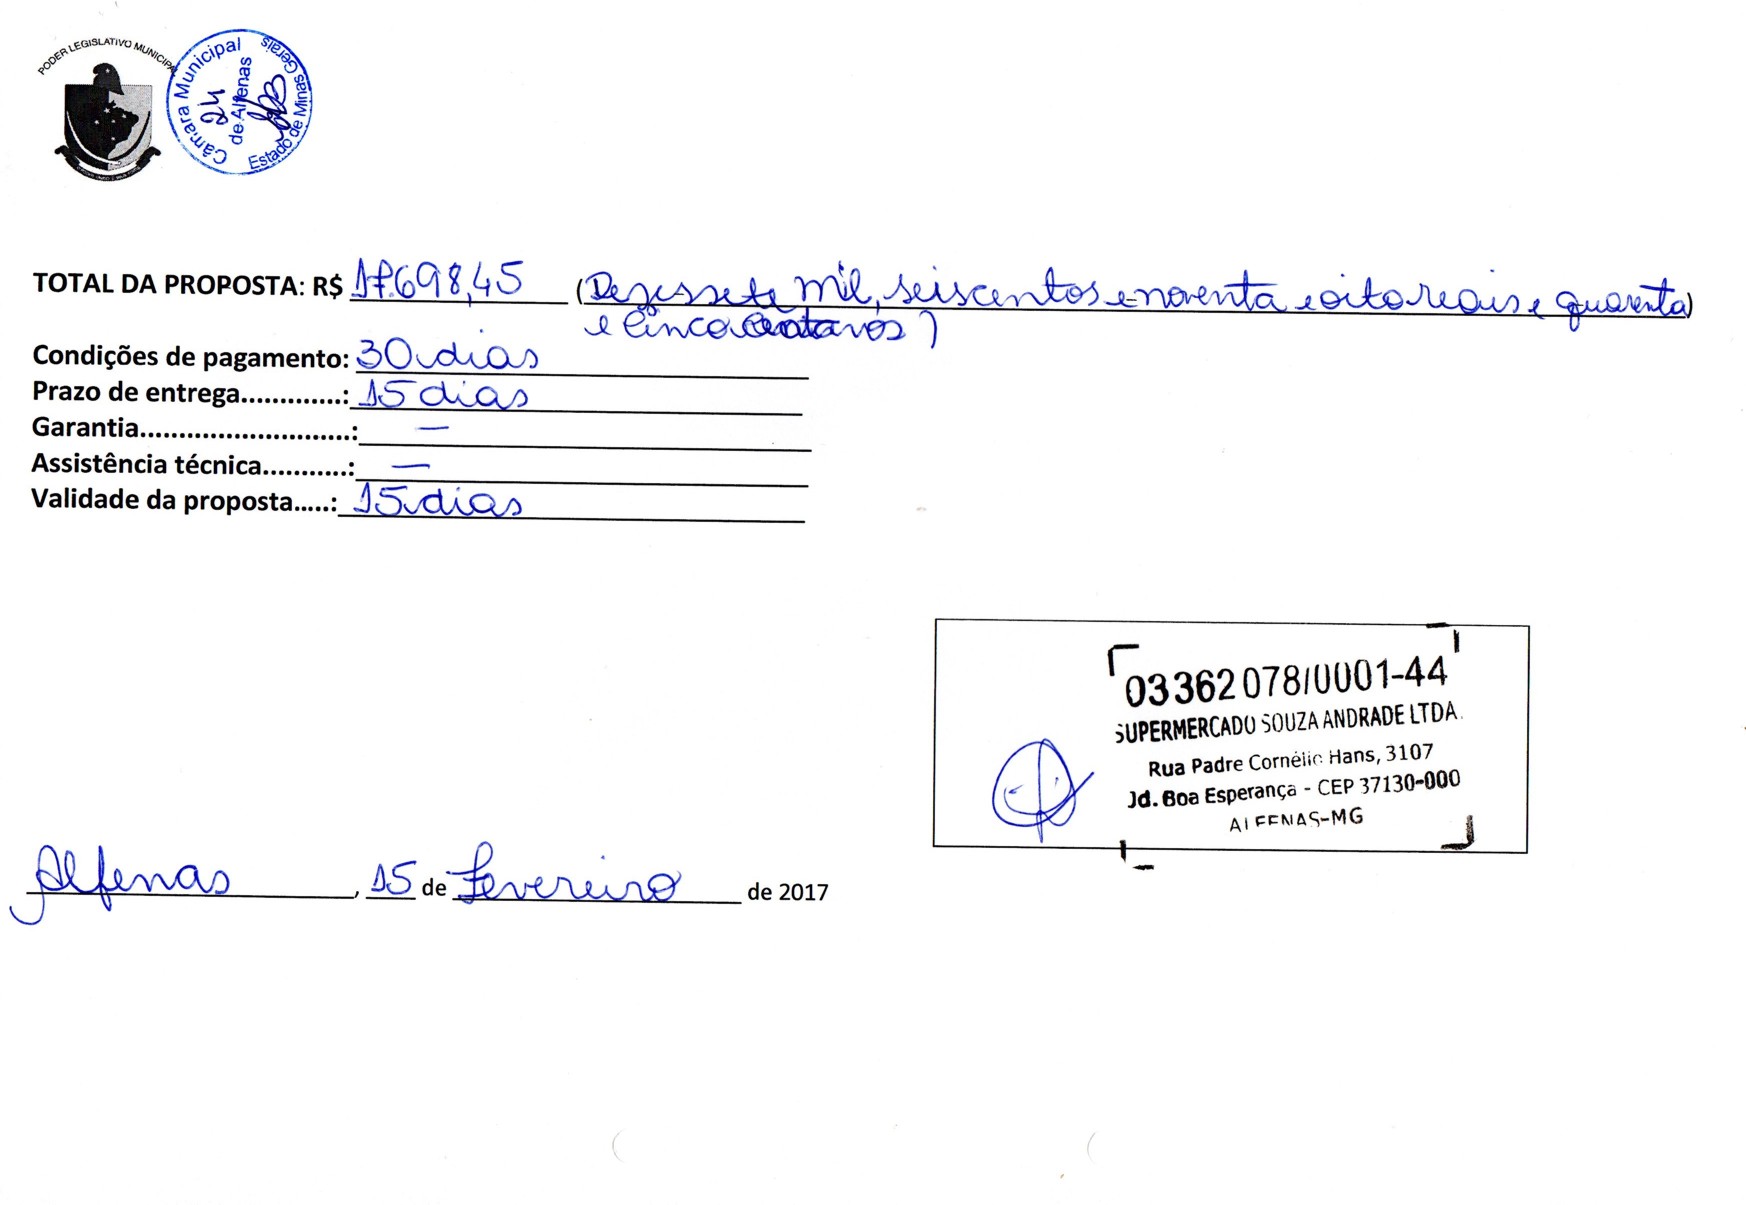 PODER LEGISLATIVO MUNICIPAL
Câmara Municipal
24
de Alfenas
Estado de Minas Gerais
TOTAL DA PROPOSTA: R$ 17.698,45 (Dezessete mil, seiscentos e noventa e oito reais e quarenta)
e cinco centavos)
Condições de pagamento: 30 dias
Prazo de entrega.............: 15 dias
Garantia...........................: —
Assistência técnica...........: —
Validade da proposta.....: 15 dias
03362078/0001-44
SUPERMERCADO SOUZA ANDRADE LTDA.
Rua Padre Cornélio Hans, 3107
Jd. Boa Esperança - CEP 37130-000
ALFENAS-MG
Alfenas, 15 de Fevereiro de 2017